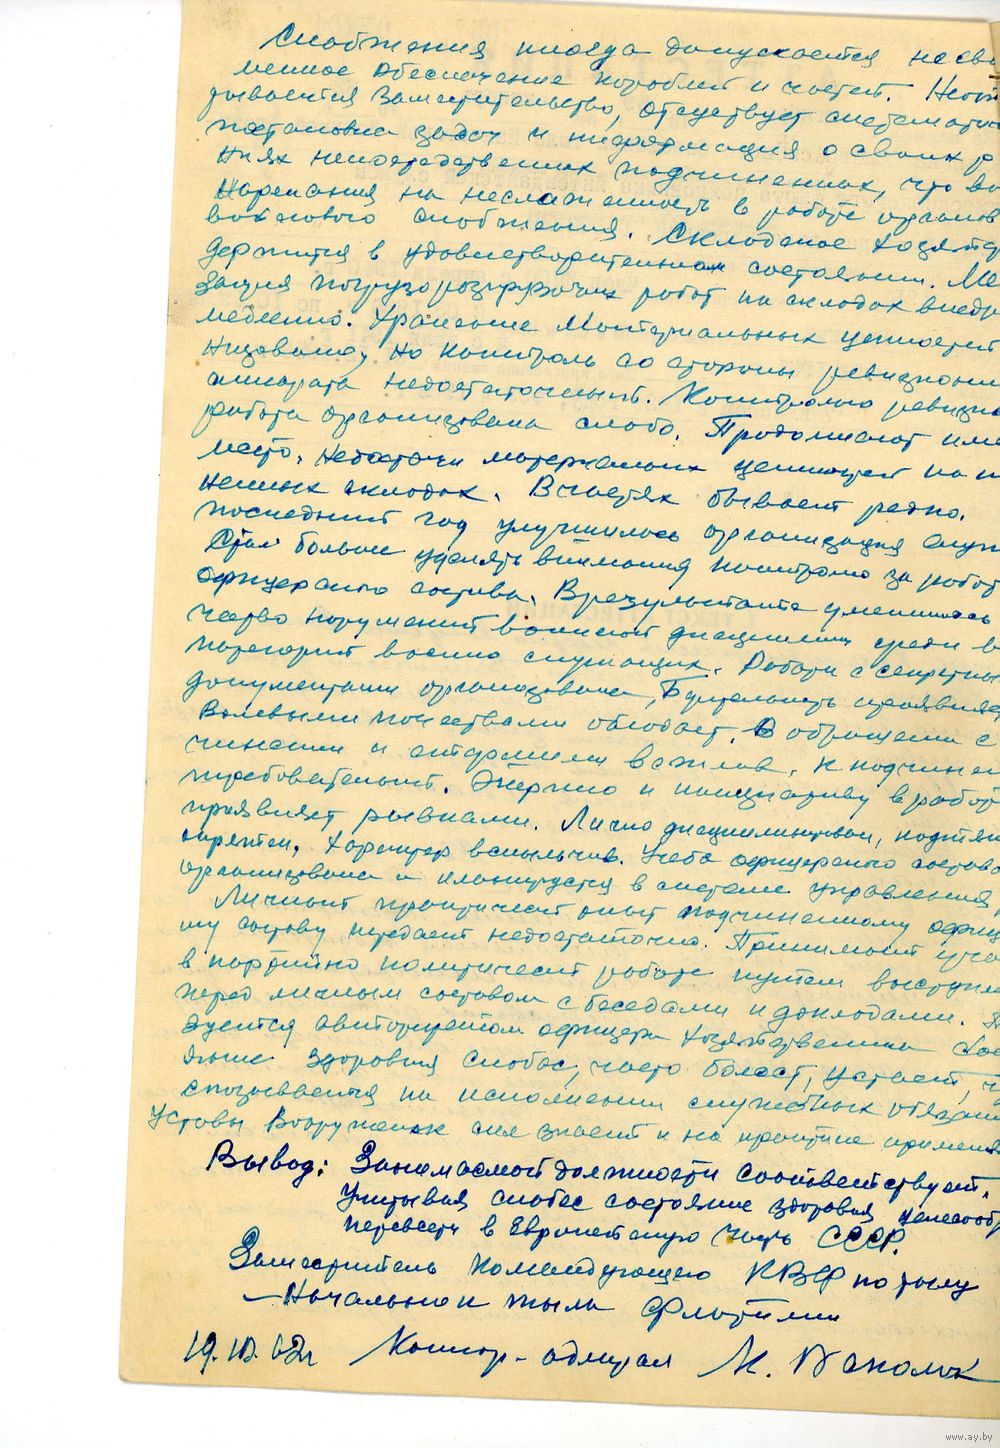 Снабжения иногда допускается несвое
менное обеспечение кораблей и частей.
рывается заместительство, отсутствует системати
постановка задач и информация о своих р
ниях непосредственных подчиненных, что
нарекания на неслаженность в работе органов
вого снабжения. Складское хозяйст
держится в удовлетворительном состоянии. Ме
зация погрузоразгрузочных работ на складах внедр
медленно. Хранение материальных ценностей
низовано, но контроль со стороны ревизион
аппарата недостаточный. Контрольно ревизи
работа организована слабо. Продолжают име
место недостачи материальных ценностей на
ненных складах. В частях бывает редко.
последний год улучшилась организация служ
Стал больше уделять внимания контролю за работ
офицерского состава. В результате уменьшилось
чество нарушений воинской дисциплины среди в
категорий военнослужащих. Работа с секретны
документами организована, бдительность проявляе
Волевыми качествами обладает. В обращении с
чинением и старшими вежлив, к подчинен
требователен. Энергию и инициативу в работ
проявляет рывками. Лично дисциплинирован, подтян
опрятен. Характер вспыльчив. Учеба офицерского состав
организована и планируется в системе управления
Личный практический опыт подчиненному офиц
му составу передает недостаточно. Принимает уча
в партийно политической работе путем выступле
перед личным составом с беседами и докладами.
зуется авторитетом офицера хозяйственника. Сос
яние здоровья слабое, часто болеет, устает,
сказывается на исполнении служебных обязан
Уставы Вооруженных сил знает и на практике применя
Вывод: Занимаемой должности соответствует.
Учитывая слабое состояние здоровья целесообр
перевести в Европейскую часть СССР.
Заместитель командующего КВФ по тылу
— Начальник тыла Флотилии
Контр-адмирал
www.ay.by